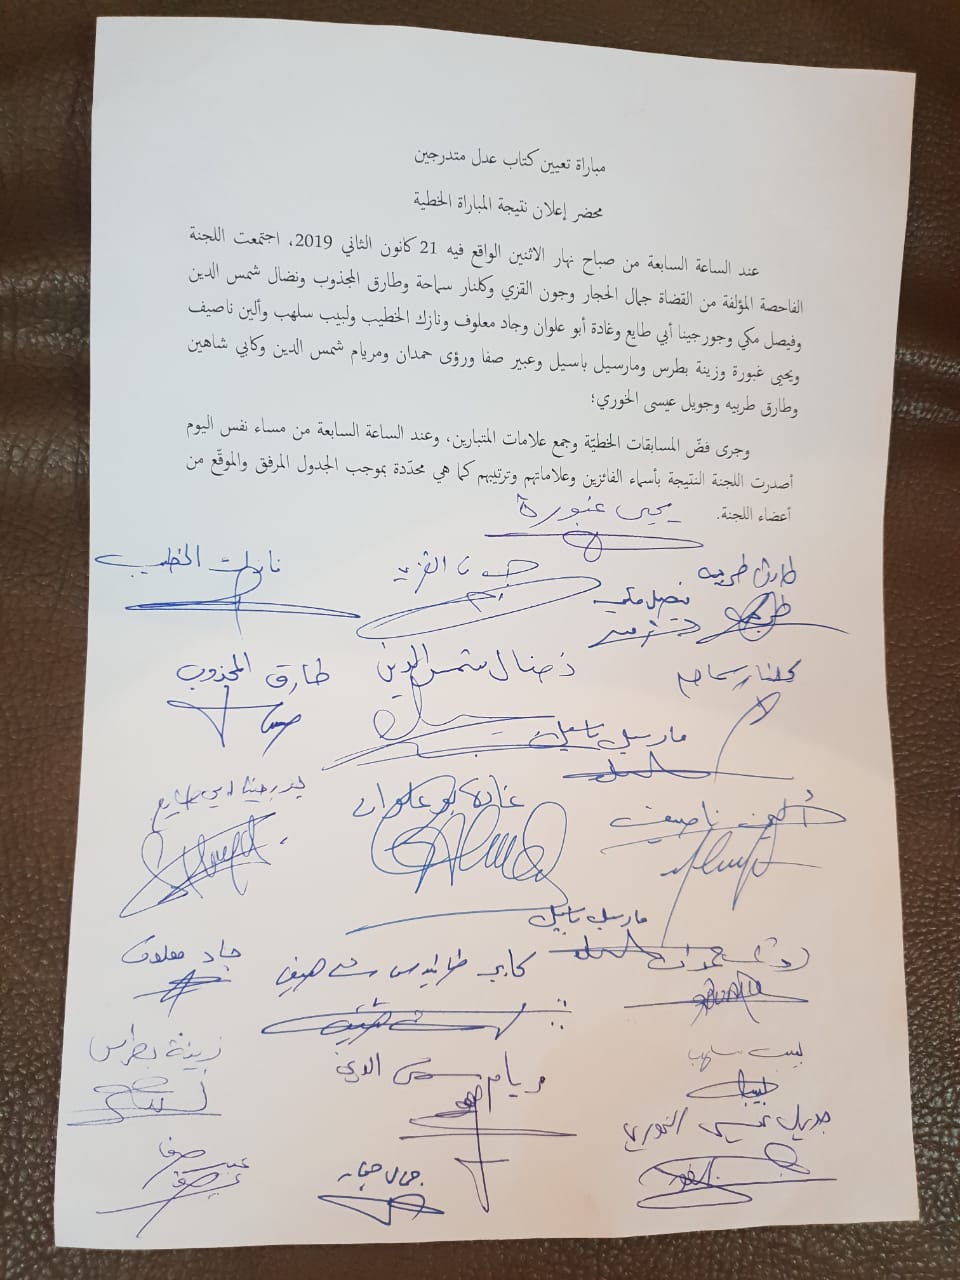 مباراة تعيين كتاب عدل متدرجين
محضر إعلان نتيجة المباراة الخطية
عند الساعة السابعة من صباح نهار الاثنين الواقع فيه 21 كانون الثاني 2019، اجتمعت اللجنة
الفاحصة المؤلفة من القضاة جمال الحجار وجون القزي وكلنار سماحة وطارق المجذوب ونضال شمس الدين
وفيصل مكي وجورجينا أبي طايع وغادة أبو علوان وجاد معلوف ونازك الخطيب ولبيب سلهب وألين ناصيف
ويحيى غبورة وزينة بطرس ومارسيل باسيل وعبير صفا ورؤى حمدان ومريام شمس الدين وكابي شاهين
وطارق طربيه وجويل عيسى الخوري؛
وجرى فضّ المسابقات الخطيّة وجمع علامات المتبارين، وعند الساعة السابعة من مساء نفس اليوم
أصدرت اللجنة النتيجة بأسماء الفائزين وعلاماتهم وترتيبهم كما هي محدّدة بموجب الجدول المرفق والموقّع من
أعضاء اللجنة.
يحيى غبورة
طارق طربيه
فيصل مكي
جون القزي
نازك الخطيب
كلنار سماحه
نضال شمس الدين
طارق المجذوب
مارسيل باسيل
ألين ناصيف
غادة ابو علوان
جورجينا ابي طايع
مارسيل باسيل
رؤى حمدان
كابي شاهين
جاد معلوف
لبيب سلهب
مريام شمس الدين
زينة بطرس
جويل عيسى الخوري
جمال حجار
عبير صفا